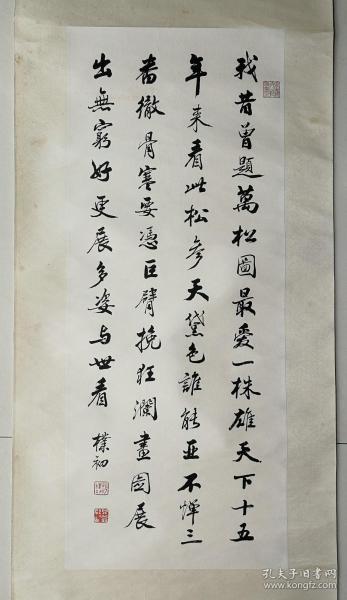 我昔曾題萬松圖最愛一株雄天下十五
年來看此松參天黛色誰能亞不憚三
番徹骨寒要憑巨臂挽狂瀾畫圖展
出無窮好更展多姿与世看 樸初
孔夫子旧书网
www.kongfz.com